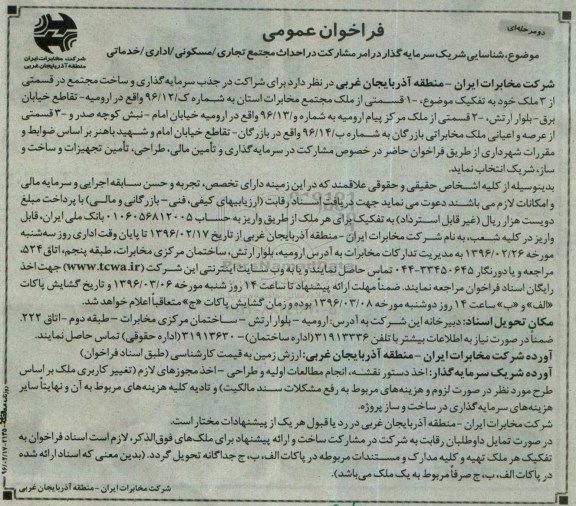 دو مرحله‌ای
فراخوان عمومی
موضوع، شناسایی شریک سرمایه گذار در امر مشارکت در احداث مجتمع تجاری/مسکونی/اداری/خدماتی
شرکت مخابرات ایران
منطقه آذربایجان غربی
شرکت مخابرات ایران - منطقه آذربایجان غربی در نظر دارد برای شراکت در جذب سرمایه گذاری و ساخت مجتمع در قسمتی
از ۳ ملک خود به تفکیک موضوع، ۱- قسمتی از ملک مجتمع مخابرات استان به شماره ک/۹۶/۱۲ واقع در ارومیه- تقاطع خیابان
برق- بلوار ارتش، ۲- قسمت از ملک مرکز پیام ارومیه به شماره و/۹۶/۱۳ واقع در ارومیه خیابان امام - نبش کوچه صدر و ۳- قسمتی
از عرصه و اعیانی ملک مخابراتی بازرگان به شماره ب/۹۶/۱۴ واقع در بازرگان- تقاطع خیابان امام و شهید باهنر بر اساس ضوابط و
مقررات شهرداری از طریق فراخوان حاضر در خصوص مشارکت در سرمایه گذاری و تأمین مالی، طراحی، تأمین تجهیزات و ساخت و
ساز، شریک انتخاب نماید.
بدینوسیله از کلیه اشخاص حقیقی و حقوقی علاقمند که در این زمینه دارای تخصص، تجربه و حسن سابقه اجرایی و سرمایه مالی
و امکانات لازم می باشند دعوت می نماید جهت دریافت اسناد رقابت (ارزیابیهای کیفی، فنی- بازرگانی و مالی) با پرداخت مبلغ
دویست هزار ریال (غیر قابل استرداد) به تفکیک برای هر ملک از طریق واریز به حساب ۰۱۰۶۰۵۶۸۱۲۰۰۵ بانک ملی ایران، قابل
واریز در کلیه شعب، به نام شرکت مخابرات ایران - منطقه آذربایجان غربی از تاریخ ۱۳۹۶/۰۲/۱۷ تا پایان وقت اداری روز سه شنبه
مورخه ۱۳۹۶/۰۲/۲۶ به مدیریت تدارکات مخابرات به آدرس ارومیه، بلوار ارتش، ساختمان مرکزی مخابرات، طبقه پنجم، اتاق ۵۲۴،
مراجعه و یا دورنگار ۳۳۴۵۰۶۴۵-۰۴۴ تماس حاصل نمایند و یا به وب سایت اینترنتی این شرکت (www.tcwa.ir) جهت اخذ
رایگان اسناد فراخوان مراجعه نمایند. ضمناً مهلت ارائه پیشنهاد تا ساعت ۱۴ روز شنبه مورخه ۱۳۹۶/۰۳/۰۶ و تاریخ گشایش پاکات
«الف» و «ب» ساعت ۱۴ روز دوشنبه مورخه ۱۳۹۶/۰۳/۰۸ بوده و زمان گشایش پاکات «ج» متعاقباً اعلام خواهد شد.
مکان تحویل اسناد: دبیرخانه این شرکت به آدرس: ارومیه - بلوار ارتش - ساختمان مرکزی مخابرات - طبقه دوم - اتاق ۲۲۲.
ضمناً در صورت نیاز به اطلاعات بیشتر با تلفن ۳۱۹۱۳۳۳۶ (اداره ساختمان) - ۳۱۹۱۳۶۳۰ (اداره حقوقی) تماس حاصل نمایند.
آورده شرکت مخابرات ایران - منطقه آذربایجان غربی: ارزش زمین به قیمت کارشناسی (طبق اسناد فراخوان)
آورده شریک سرمایه گذار: اخذ دستور نقشه، انجام مطالعات اولیه و طراحی - اخذ مجوزهای لازم (تغییر کاربری ملک بر اساس
طرح مورد نظر در صورت لزوم و هزینه های مربوط به رفع مشکلات سند مالکیت) و تادیه کلیه هزینه های مربوط به آن و نهایتاً سایر
هزینه های سرمایه گذاری در ساخت و ساز پروژه.
شرکت مخابرات ایران - منطقه آذربایجان غربی در رد یا قبول هر یک از پیشنهادات مختار است.
در صورت تمایل داوطلبان رقابت به شرکت در مشارکت ساخت و ارائه پیشنهاد برای ملک های فوق الذکر، لازم است اسناد فراخوان به
تفکیک هر ملک تهیه و کلیه مدارک و مستندات مربوطه در پاکات الف، ب، ج جداگانه تحویل گردد. (بدین معنی که اسناد ارائه شده
در پاکات الف، ب، ج صرفاً مربوط به یک ملک می باشد).
شرکت مخابرات ایران - منطقه آذربایجان غربی